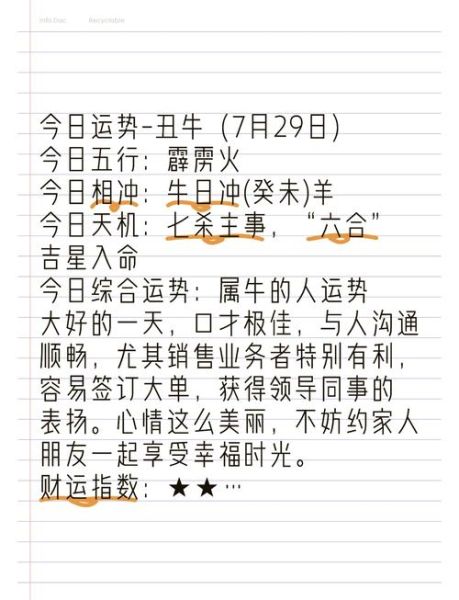 Info Doc Recyclable
今日运势-丑牛（7月29日）
今日五行：霹雳火
今日相冲：牛日冲(癸未)羊
今日天机：七杀主事，“六合”
吉星入命
今日综合运势：属牛的人运势
大好的一天，口才极佳，与人沟通
顺畅，尤其销售业务者特别有利，
容易签订大单，获得领导同事的
表扬。心情这么美丽，不妨约家人
朋友一起享受幸福时光。
财运指数：★★…